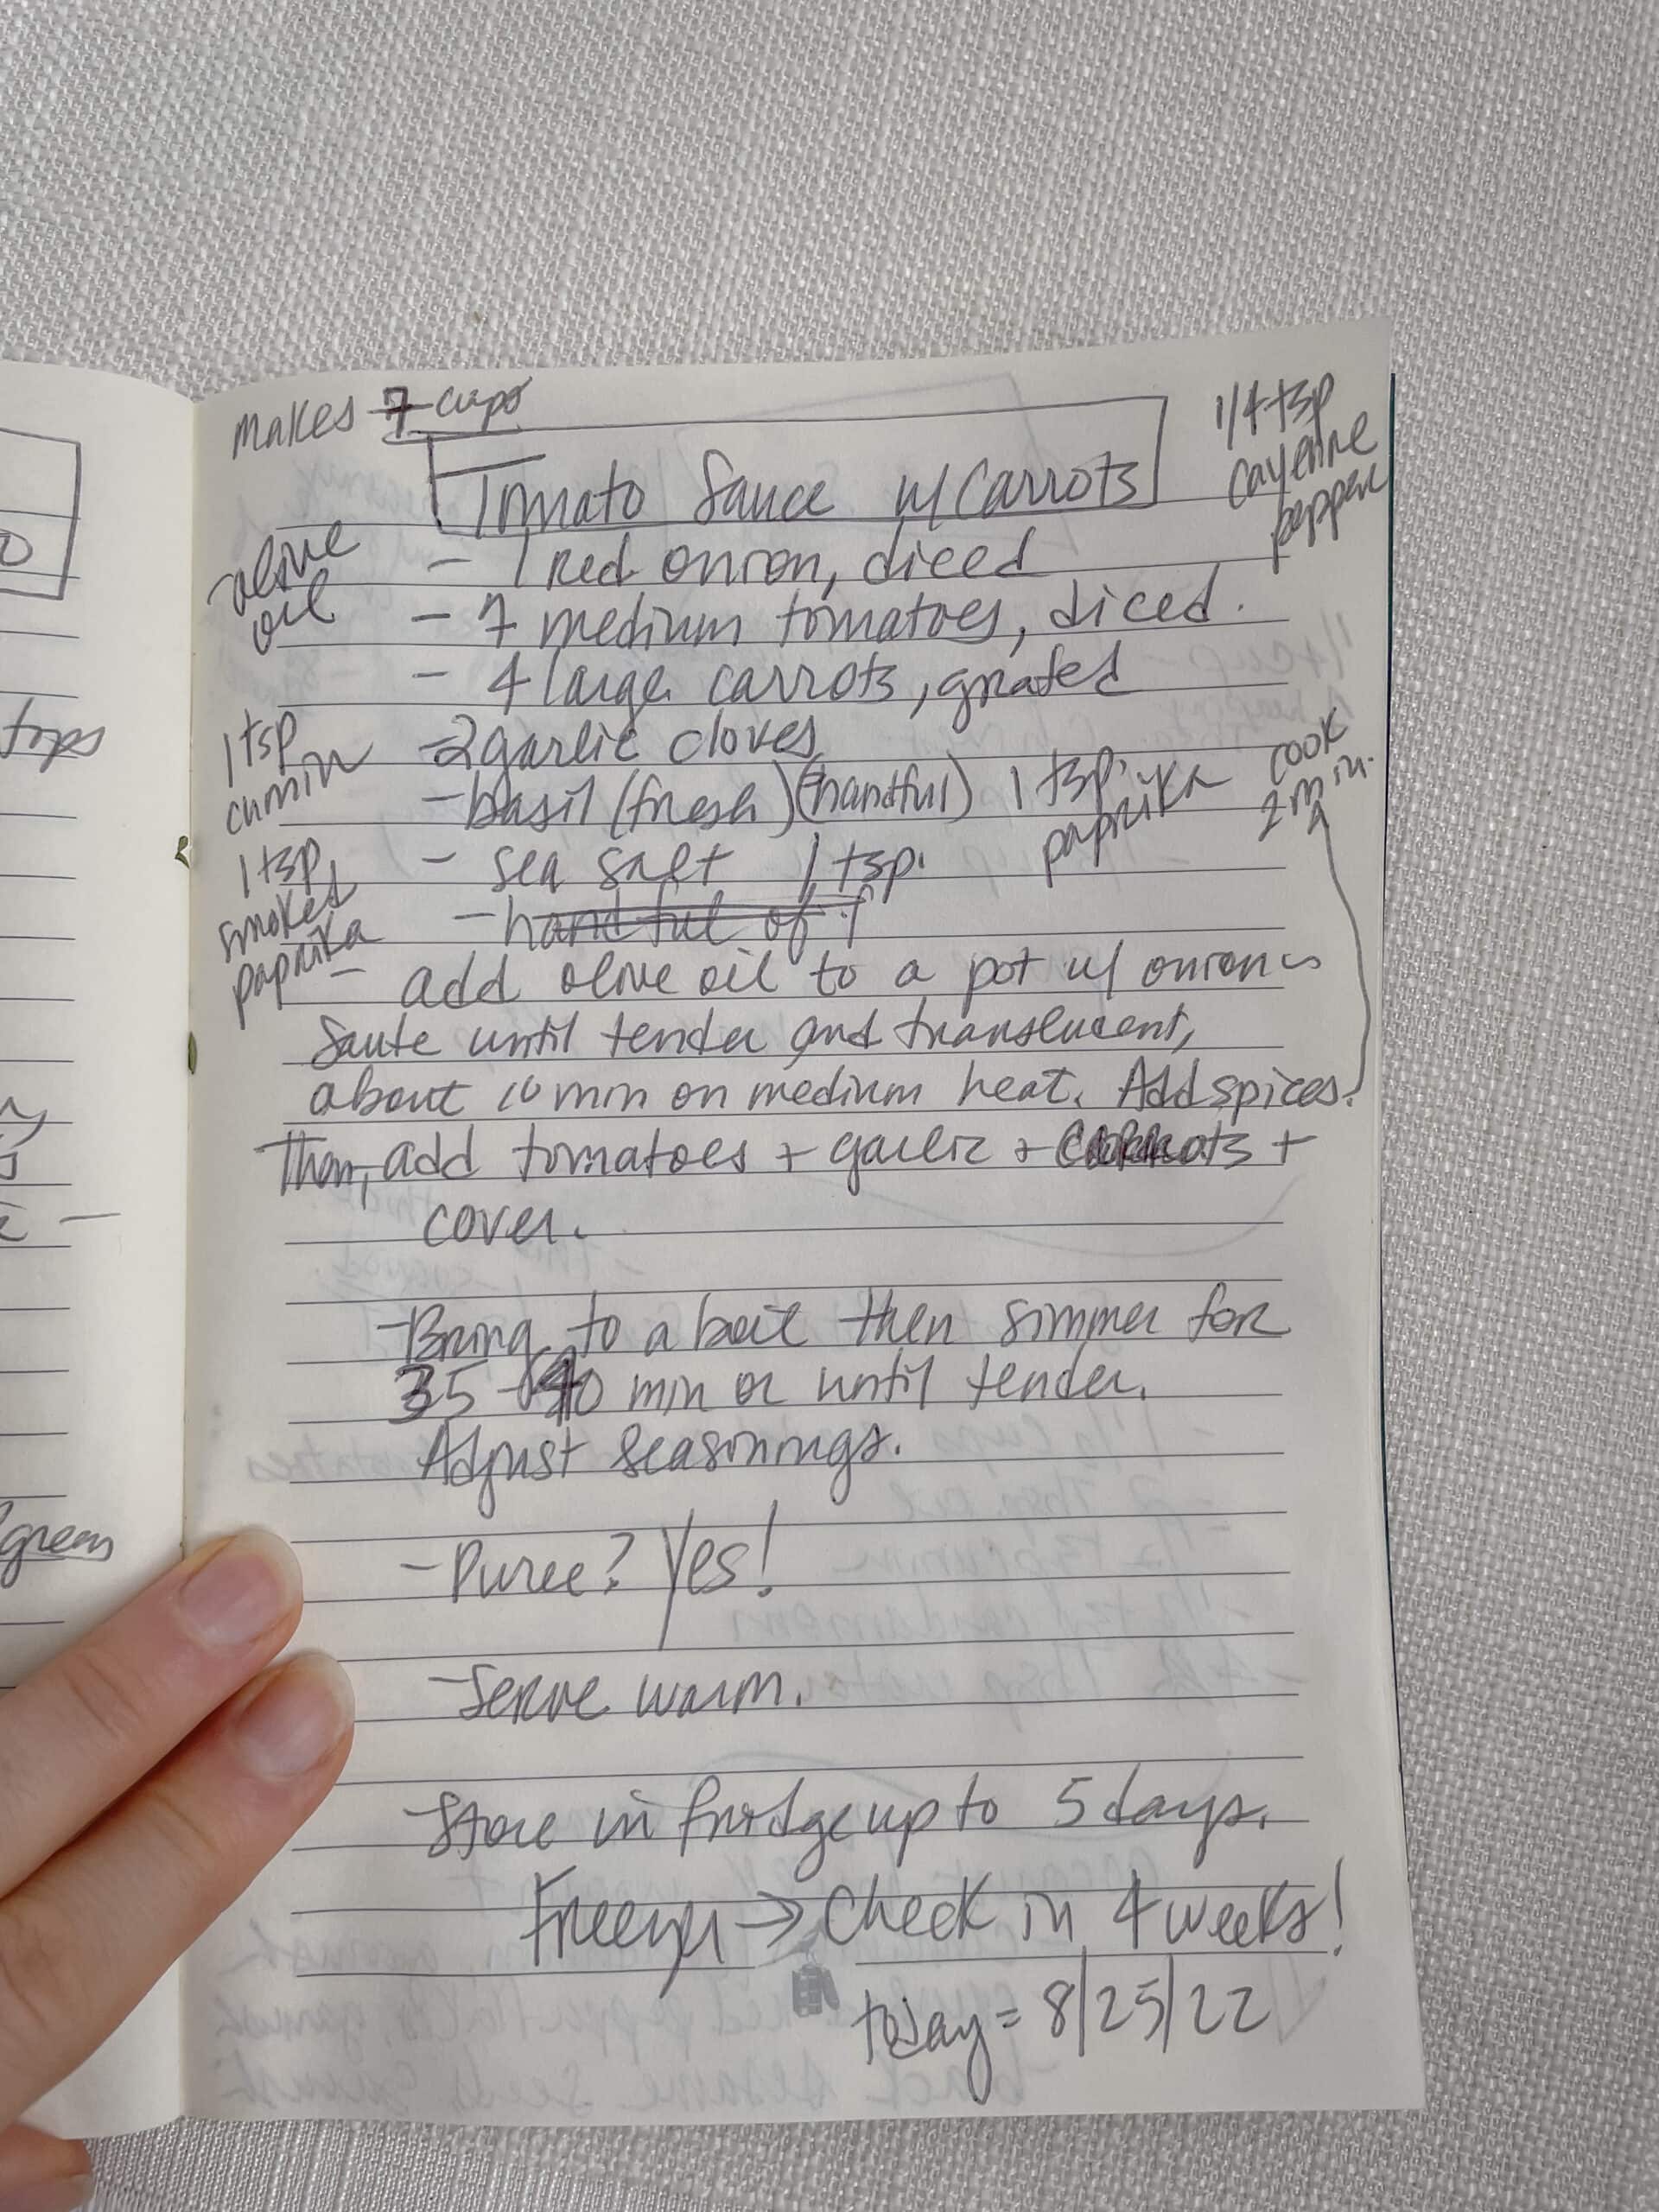 makes 7 cups
Tomato Sauce w/ Carrots
1/4 tsp
cayenne
pepper
olive
oil
- 1 red onion, diced
- 7 medium tomatoes, diced.
- 4 large carrots, grated
- 2 garlic cloves
- basil (fresh) (handful)
1 tsp.
paprika
cook
2 min.
1 tsp
cumin
- sea salt 1 tsp.
1 tsp
smoked
paprika
- handful of
- add olive oil to a pot w/ onions
Saute until tender and translucent,
about 10 min on medium heat. Add spices.
Then, add tomatoes + garlic + carrots +
cover.
- Bring to a boil then simmer for
35 - 40 min or until tender.
Adjust seasonings.
- Puree? Yes!
- Serve warm.
- Store in fridge up to 5 days.
Freezer → Check in 4 weeks!
today = 8/25/22
tops
green